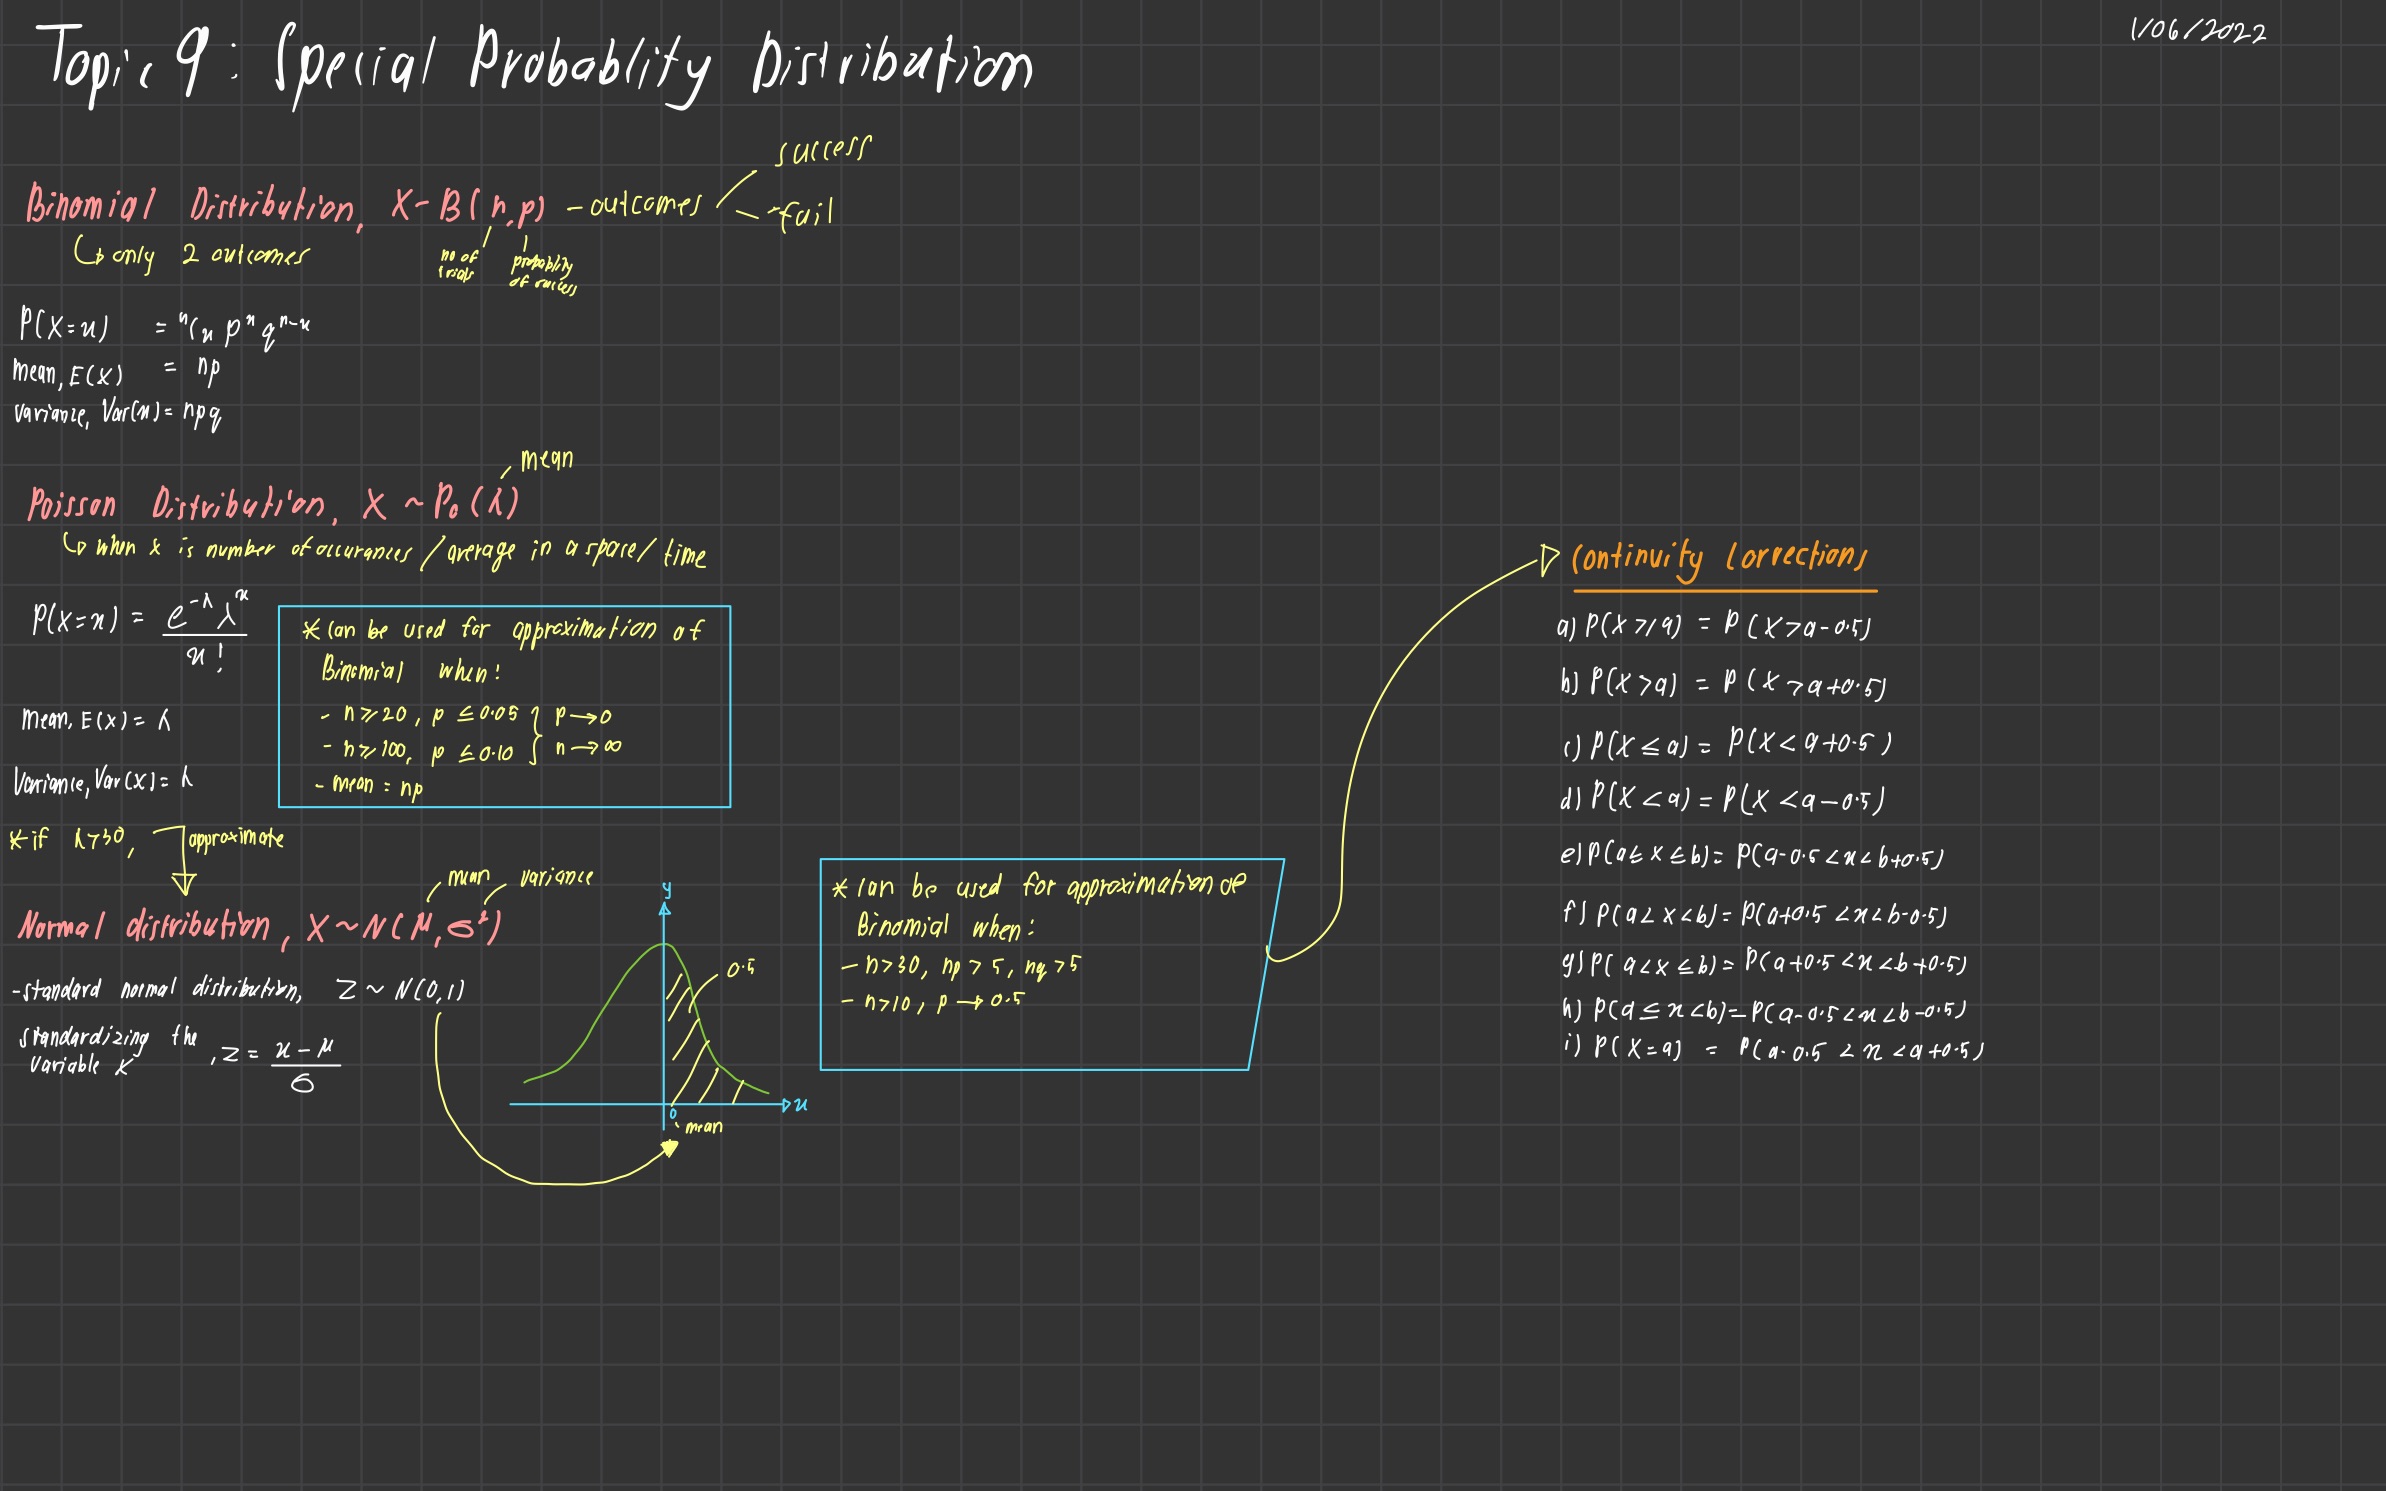 Topic 9: Special Probablity Distribution
1/06/2022
Binomial Distribution, X~B(n,p) - outcomes
success
fail
only 2 outcomes
no of trials
probablity of success
P(X=x) = ⁿCₓ pˣ qⁿ⁻ˣ
mean, E(X) = np
variance, Var(x) = npq
mean
Poisson Distribution, X ~ P₀(λ)
when x is number of occurances / average in a space / time
P(X=x) = e^-λ λ^x / x!
mean, E(x) = λ
Variance, Var(X) = λ
* Can be used for approximation of
Binomial when:
- n≥20, p ≤0.05 } p→0
- n≥100, p ≤0.10 } n→∞
- mean = np
* if λ>30, approximate
mean variance
Normal distribution, X~N(μ,σ²)
- standard normal distribution, Z ~ N(0,1)
standardizing the variable X, z = x-μ / σ
y
0.5
0
x
mean
* Can be used for approximation of
Binomial when:
- n>30, np>5, nq>5
- n>10, p → 0.5
Continuity Corrections
a) P(X ≥ a) = P(X>a-0.5)
b) P(X>a) = P(X>a+0.5)
c) P(X≤a) = P(X<a+0.5)
d) P(X<a) = P(X<a-0.5)
e) P(a≤x≤b) = P(a-0.5<x<b+0.5)
f) P(a<x<b) = P(a+0.5<x<b-0.5)
g) P(a<x≤b) = P(a+0.5<x<b+0.5)
h) P(a≤x<b) = P(a-0.5<x<b-0.5)
i) P(X=a) = P(a-0.5<x<a+0.5)